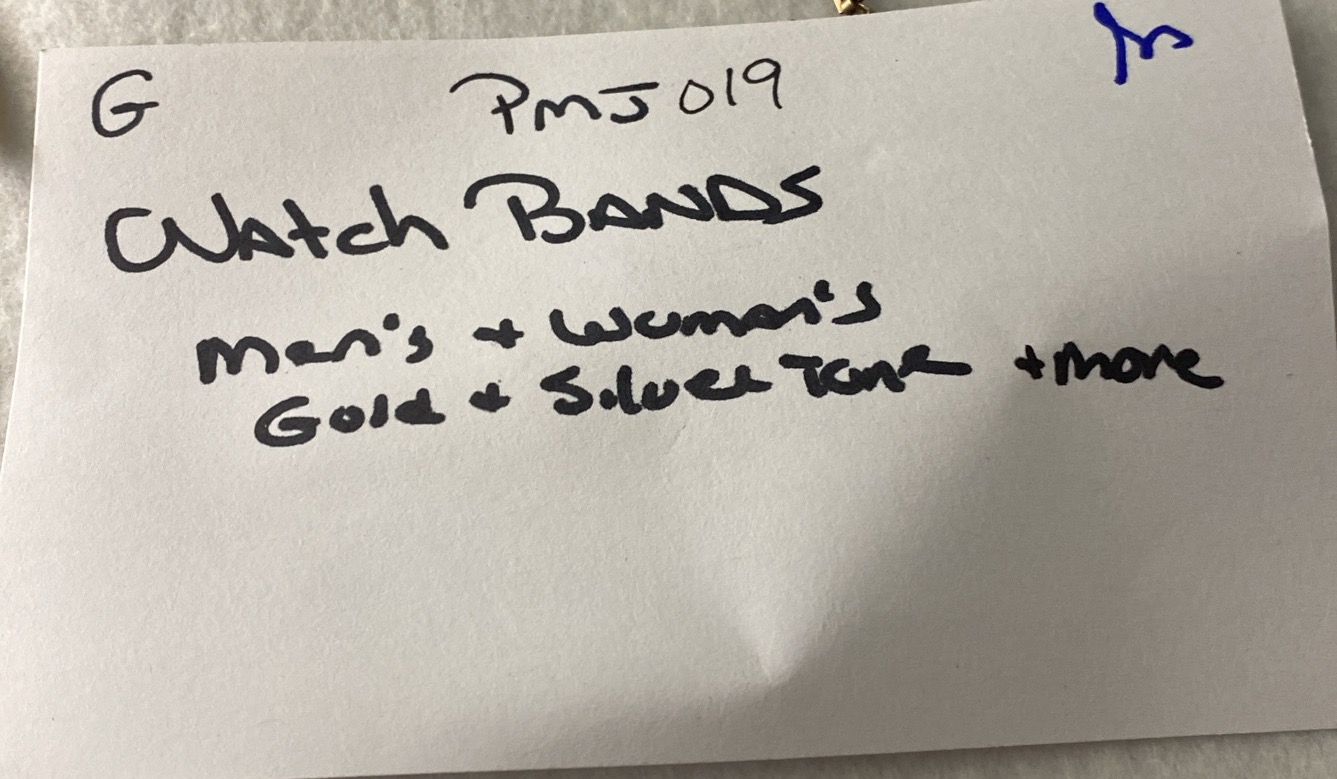 G PMJ 019
Watch BANDS
Men's + Women's
Gold + Silver Tone + more